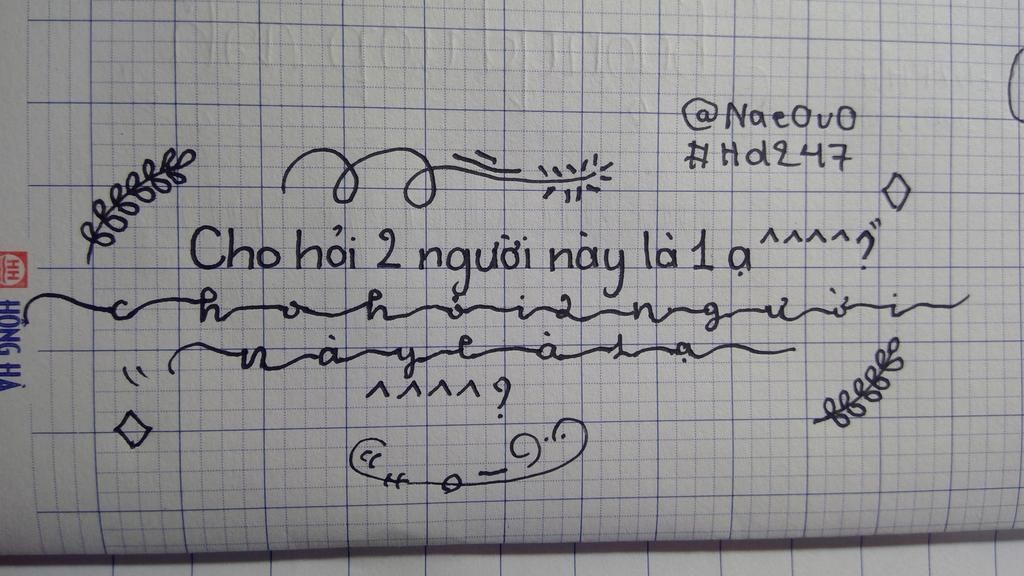 @NaeOvO
#Hd247
Cho hỏi 2 người này là 1 ạ ^^^^?
Cho hỏi 2 người
này là 1 ạ
^^^^?
HỒNG HÀ